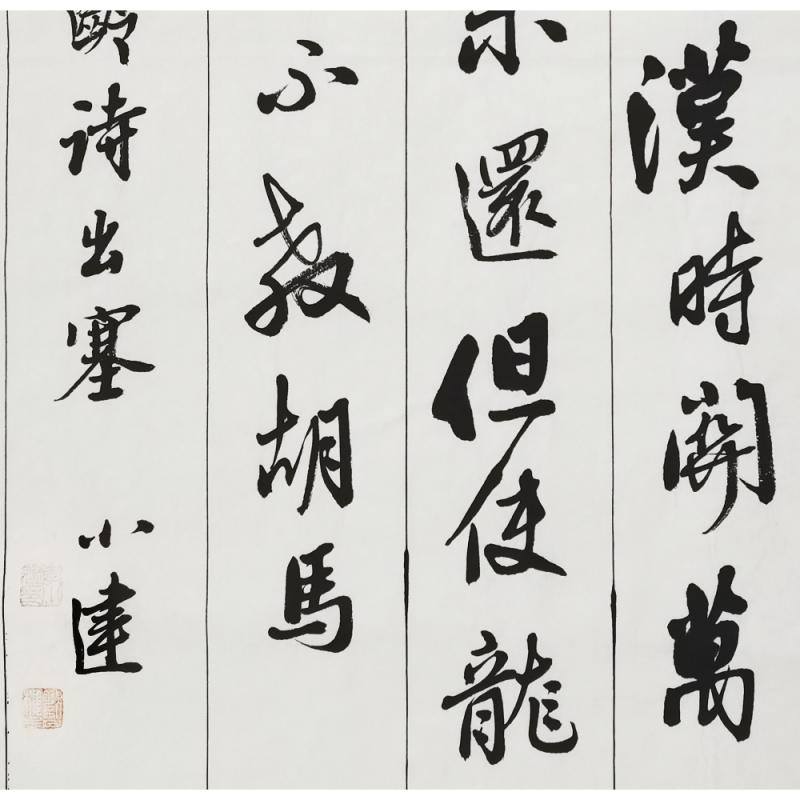 漢時關萬
未還但使龍
不教胡馬
齡诗出塞 小